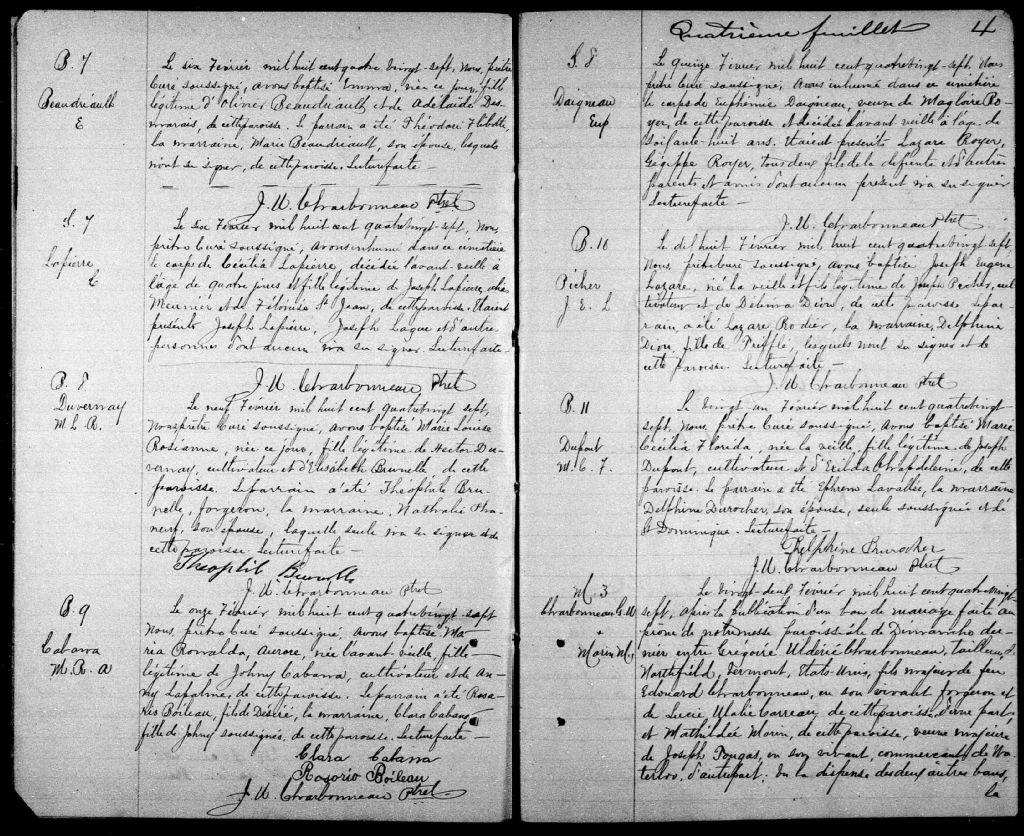 B. 7
Beaudriault
E
Le six Février mil huit cent quatre vingt-sept, Nous, prêtre
Curé soussigné, avons baptisé Emma, née ce jour, fille
légitime d'Olivier Beaudriault, et de Adélaïde Des-
marais, de cette paroisse. Le parrain a été Théodore
la marraine, Marie Beaudriault, son épouse, lesquels
n'ont su signer, de cette paroisse. Lecture faite
J. U. Charbonneau Ptre
S. 7
Lapierre
C
Le six Février mil huit cent quatrevingt-sept, Nous,
prêtre Curé soussigné, avons inhumé dans ce cimetière
le corps de Cécilia Lapierre, décédée l'avant-veille à
l'âge de quatre jours et fille légitime de Joseph Lapierre,
Meunier et de St Jean, de cette paroisse. Étaient
présents Joseph Lapierre, Joseph Laque et d'autres
personnes dont aucun n'a su signer. Lecture faite-
J. U. Charbonneau Ptre
B. 8
Duvernay
M. L. R.
Le neuf Février mil huit cent quatrevingt sept,
Nous prêtre Curé soussigné, avons baptisé Marie Louise
Roséanne, née ce jour, fille légitime de Hector Du-
vernay, cultivateur et d'Elisabeth Brunelle, de cette
paroisse. Le parrain a été Théophile Bru-
nelle, forgeron, la marraine, Nathalie Pha-
neuf, son épouse, laquelle seule n'a su signer et de
cette paroisse. Lecture faite —
Theophil Brunelle
J. U. Charbonneau Ptre
B. 9
Cabana
M. R. A
Le onze Février mil huit cent quatrevingt-sept
Nous, prêtre Curé soussigné, avons baptisé Ma-
ria Ronalda, Aurore, née l'avant veille, fille
légitime de Johny Cabana, cultivateur et de An-
ny Lapalme, de cette paroisse. Le parrain a été Rosa-
rio Boileau, fils de Désiré, la marraine, Clara Cabana
fille de Johny soussignés, de cette paroisse. Lecture faite —
Clara Cabana
Rosario Boileau
J. U. Charbonneau Ptre
Quatrième feuillet 4
S. 8
Daigneau
Eup
Le quinze Février mil huit cent quatrevingt-sept, Nous
prêtre Curé soussigné, avons inhumé dans ce cimetière
le corps de Euphémie Daigneau, veuve de Magloire Ro-
yer, de cette paroisse et décédée l'avant veille à l'âge de
soixante-huit ans. Étaient présents Lazare Royer,
Royer, tous deux fils de la défunte et d'autres
parents et amis dont aucun présent n'a su signer
Lecture faite —
J. U. Charbonneau Ptre
B. 10
Picher
J. E. L
Le dix huit Février mil huit cent quatrevingt sept
Nous, prêtre curé soussigné, avons baptisé Joseph Eugène
Lazare, né la veille et fils légitime de Joseph Pecher, cul-
tivateur et de Délima Dion, de cette paroisse. Le par-
rain, a été Lazare Rodier, la marraine, Delphine
Dion, fille de Trefflé, lesquels n'ont su signer et de
cette paroisse. Lecture faite —
J. U. Charbonneau Ptre
B. 11
Dupont
M. C. F.
Le vingt un Février mil huit cent quatrevingt-
sept, Nous, prêtre Curé soussigné, avons baptisé Marie
Cécilia Florida, née la veille, fille légitime de Joseph
Dupont, cultivateur et d'Exilda Chapdeleine, de cette
paroisse. Le parrain a été Ephrem Lavallée, la marraine
Delphine Durocher, son épouse, seule soussignée et de
St Dominique. Lecture faite —
Delphine Durocher
J. U. Charbonneau Ptre
M 3
Charbonneau G. U
+
Morin M.
Le vingt-deux Février mil huit cent quatrevingt-
sept, après la publication d'un ban de mariage faite au
prône de notre messe paroissiale de Dimanche der-
nier entre Grégoire Uldéric Charbonneau, tailleur, de
Northfield, Vermont, Etats-Unis, fils majeur de feu
Edouard Charbonneau, en son vivant forgeron et
de Lucie Ulalie Carreau, de cette paroisse, d'une part
et Mathildée Morin, de cette paroisse, veuve majeure
de Joseph Fongas, en son vivant, commerçant, de Wa-
terloo, d'autre part; vu la dispense des deux autres bans,
la